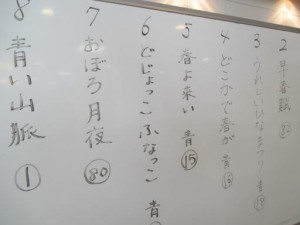 2 早春賦
3 うれしいひなまつり 青
4 どこかで春が 青
5 春よ来い 青 ⑮
6 どじょっこふなっこ 青
7 おぼろ月夜 80
8 青い山脈 ①